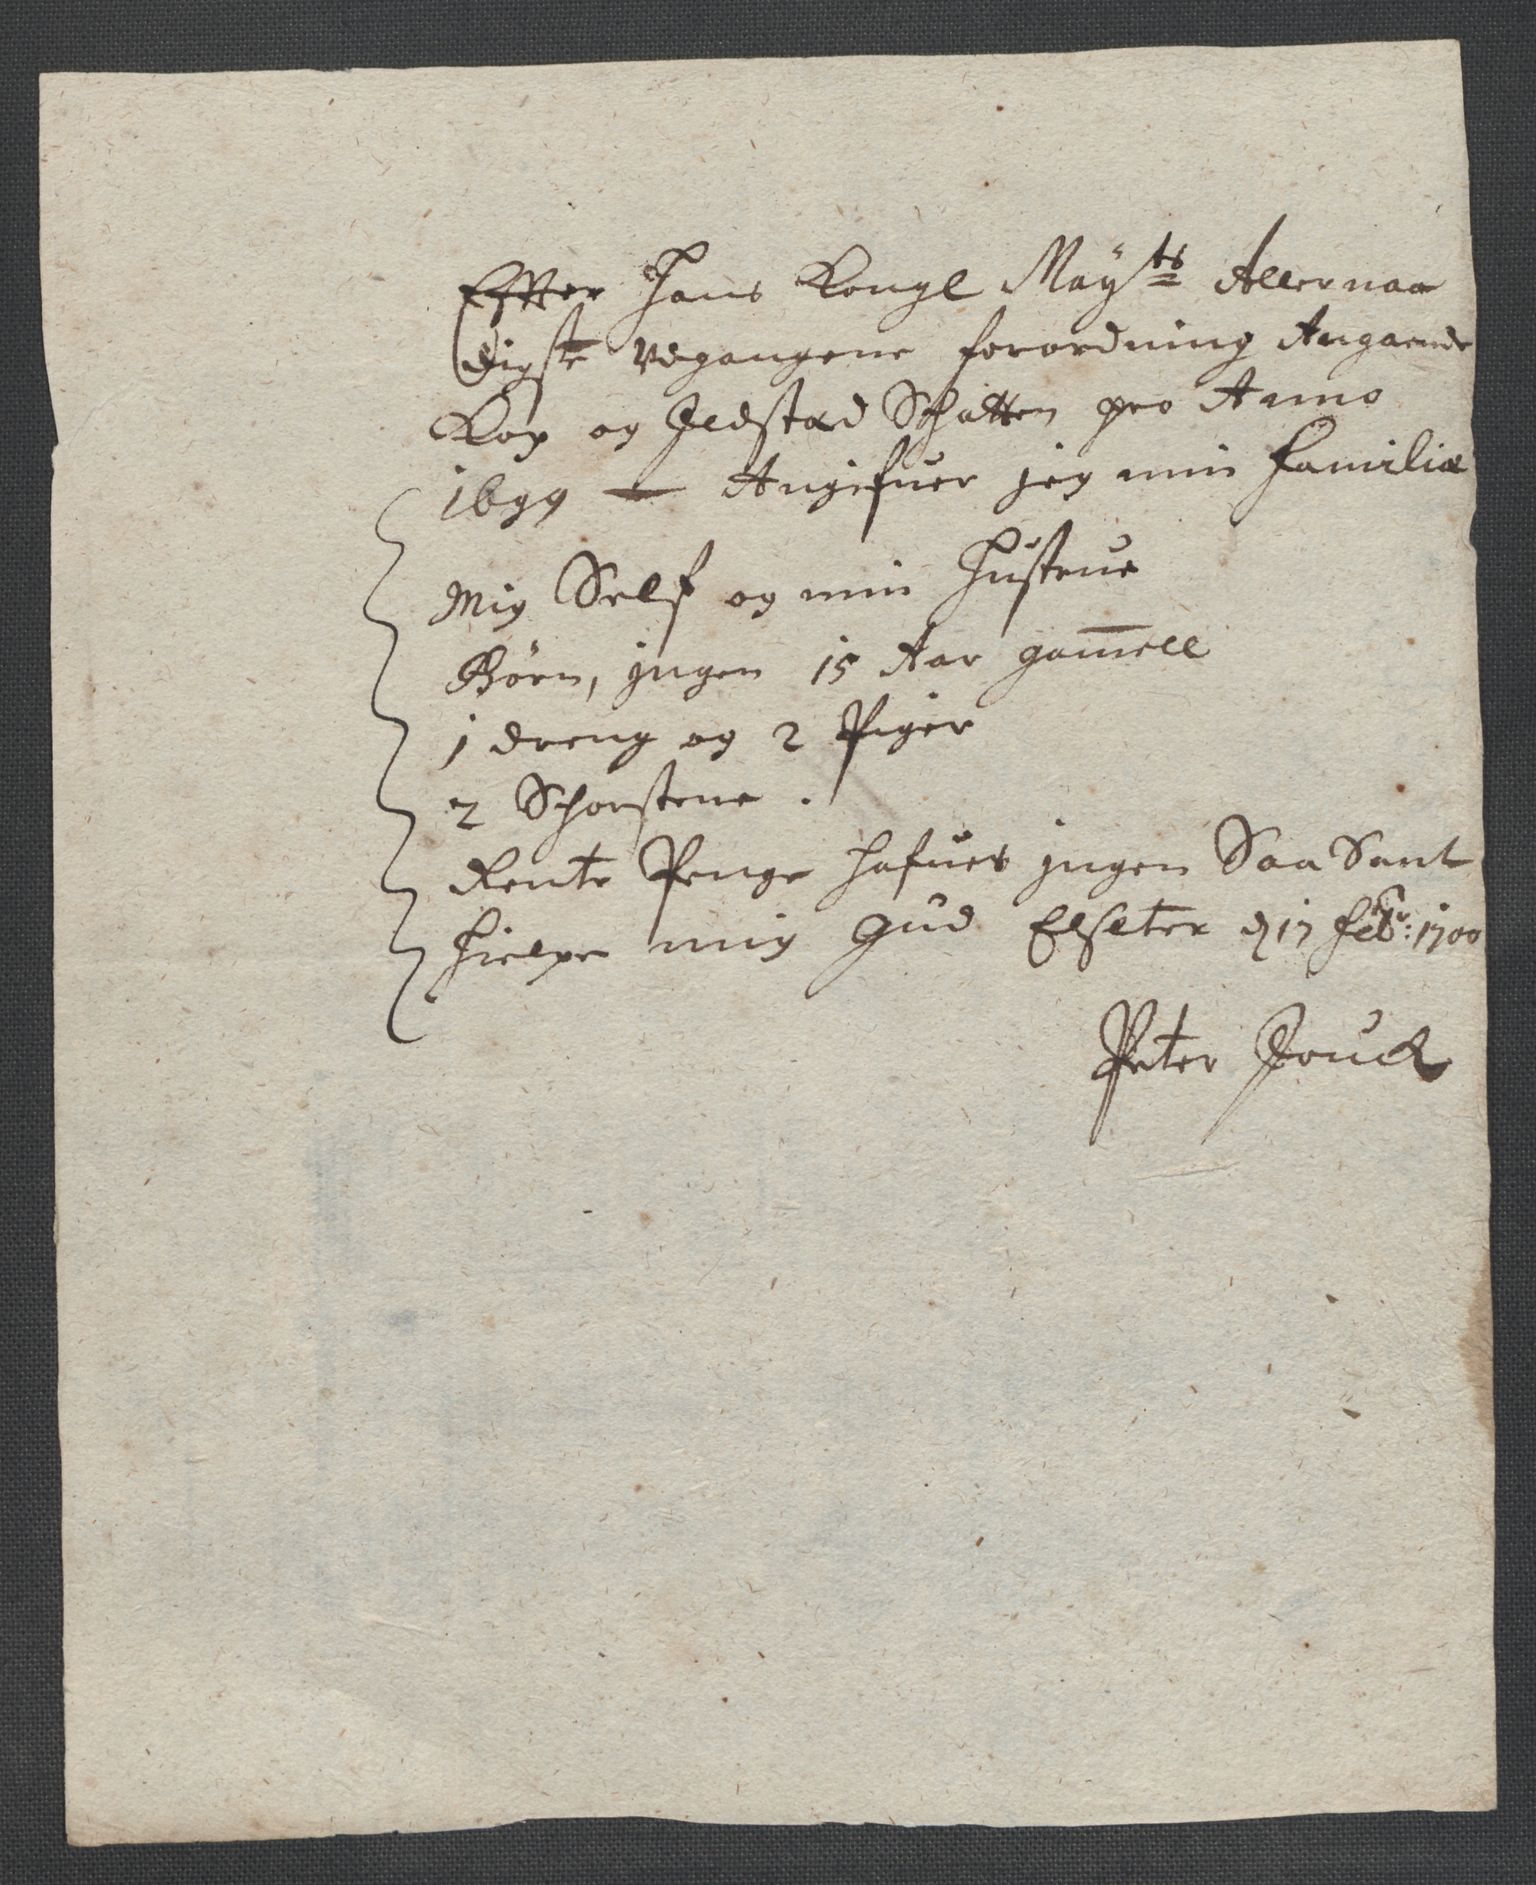 Efter Hans Kongl May^ts Allernaa
digste vdgangene forordning Angaaende
Kop og Ildstæd Schatten pro Anno
1699 — Angifuer jeg min Familie
Mig Self og min Hustrue
Børn, jngen 15 Aar gam̄ell
1 dreng og 2 Piger
2 Schorstene .
Rente Penge hafues jngen Saa Sant
hielpe mig Gud Elseter d 17 feb^r: 1700
Peter